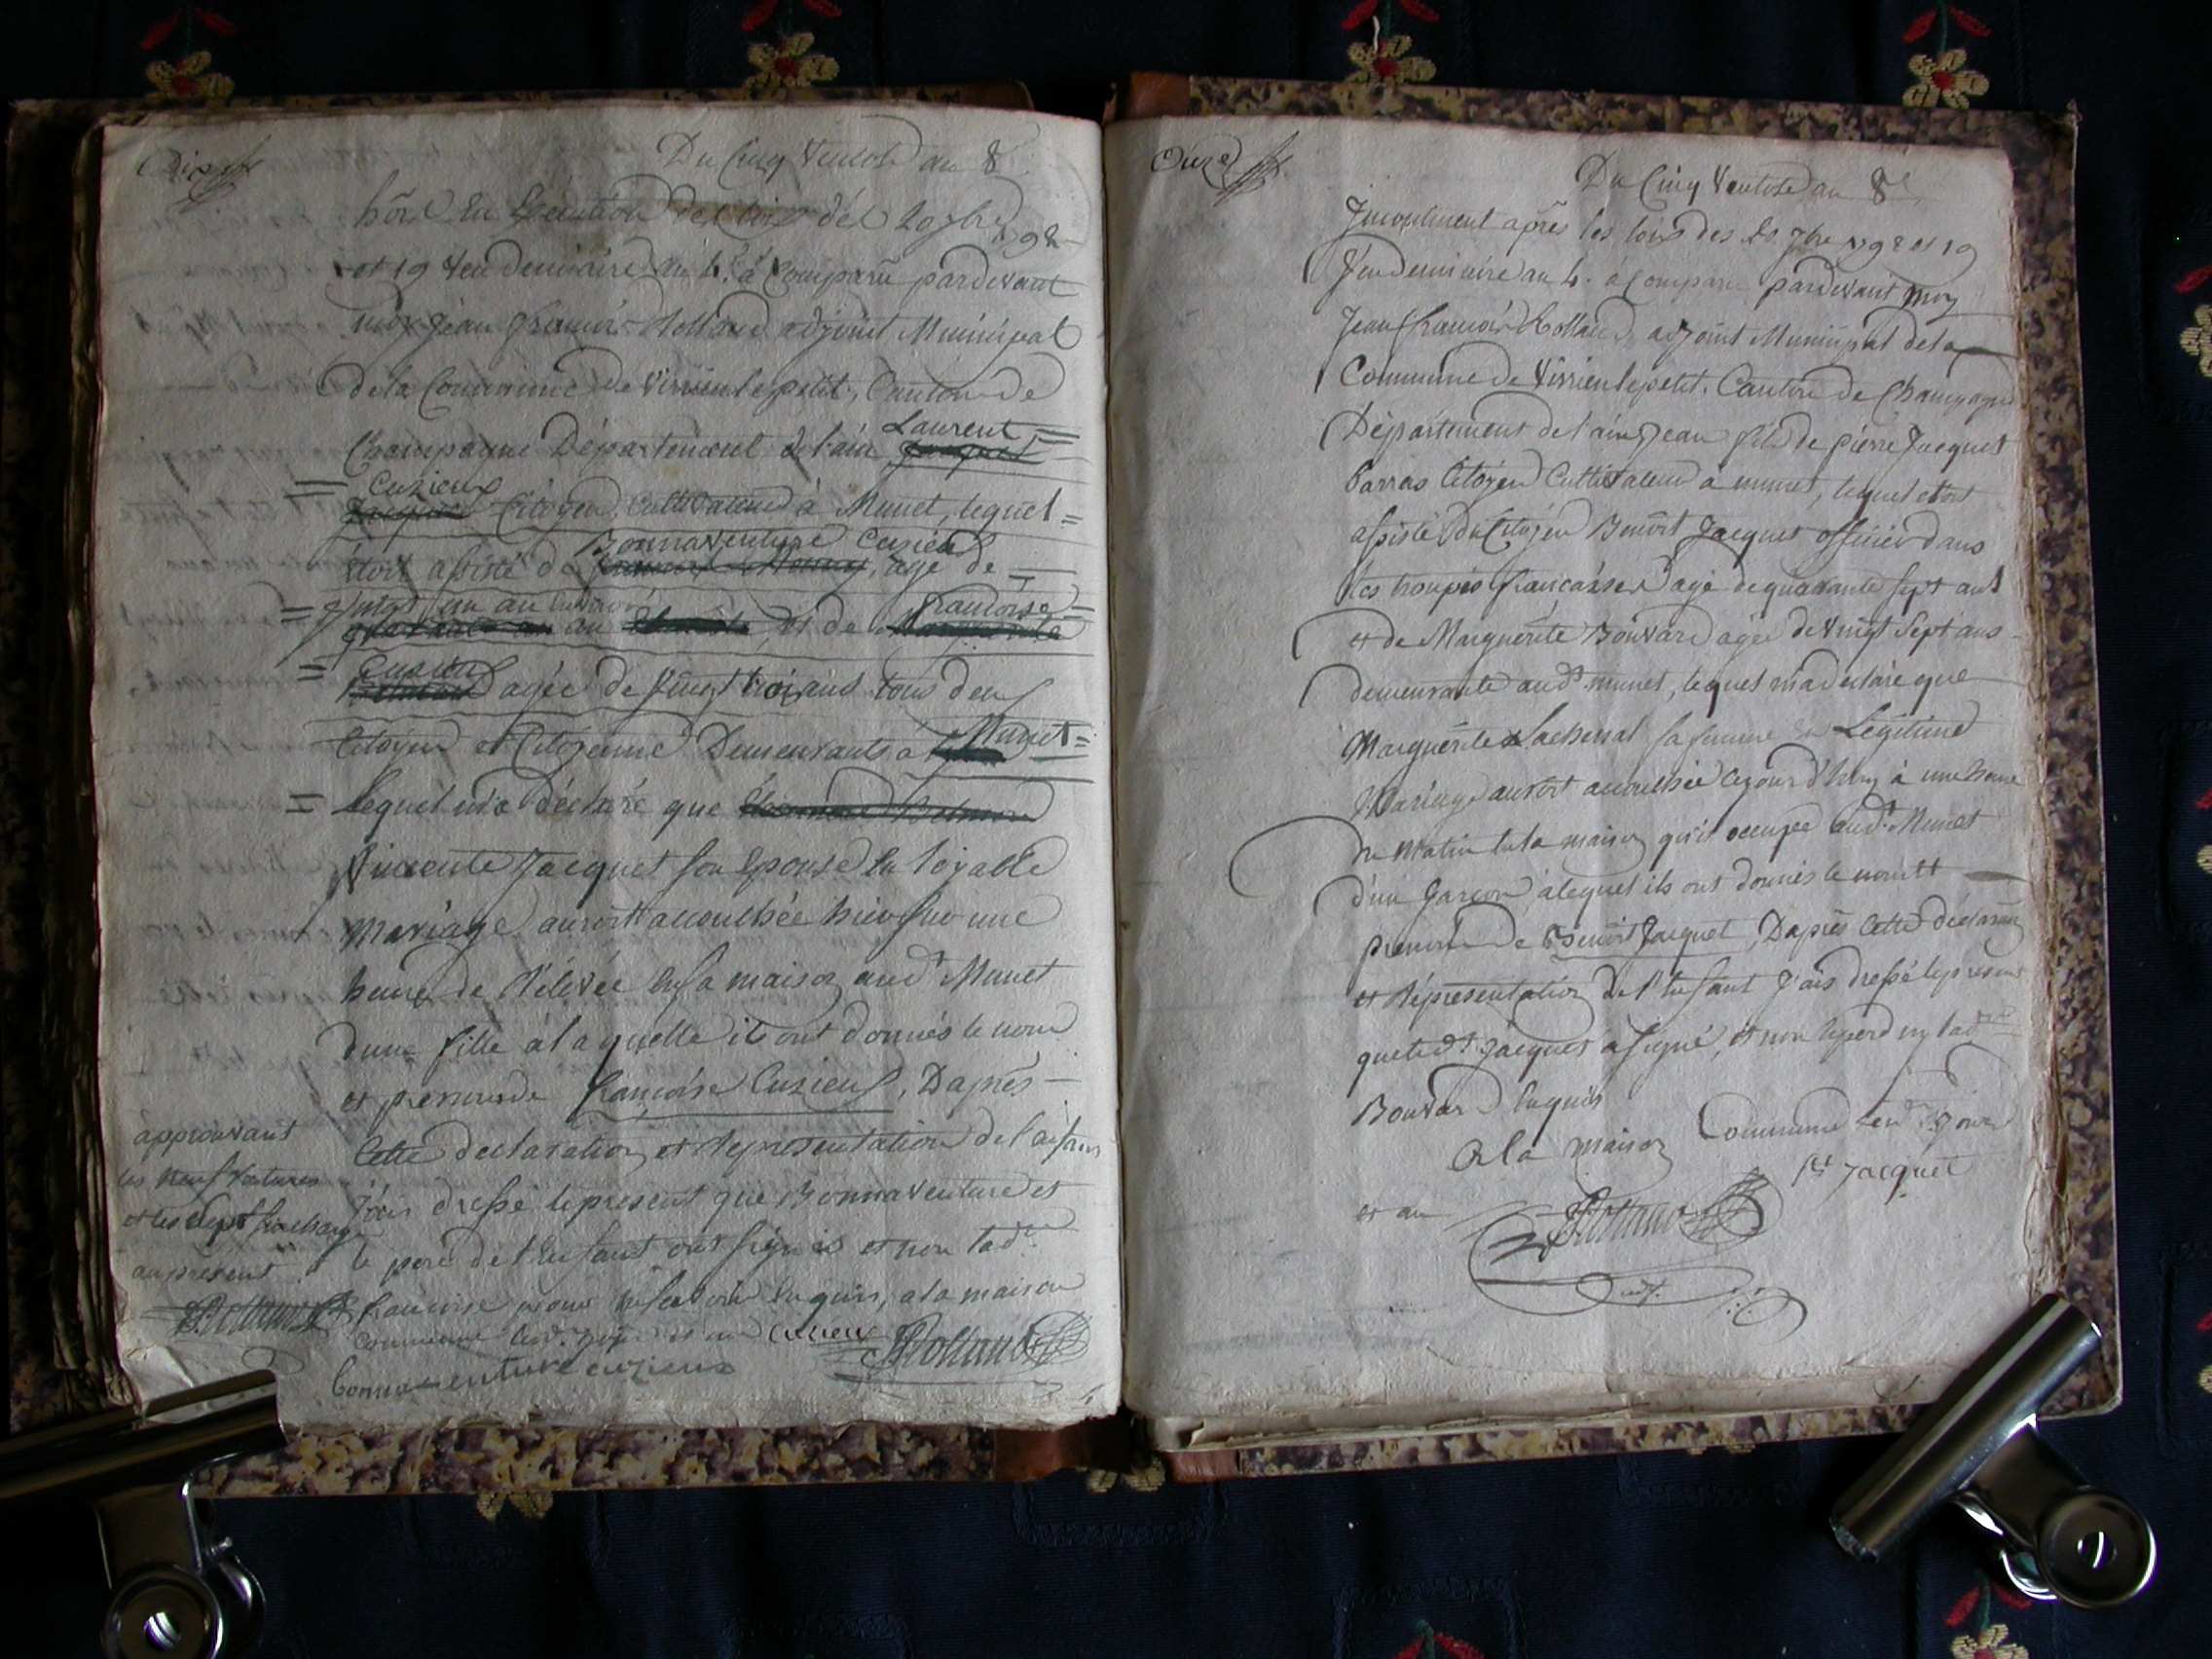 Dix
Du Cinq Ventose an 8e
et 19 Vendemiaire an 4e à Comparu pardevant
moy Jean francois Rolland adjoint Municipal
de la Commune de Virrieu le petit, Canton de
Laurent
Champagne Département de l'ain
Cuzieux
Citoyen Cultivateur à Munet, lequel
Bonnaventure Cuzieu
étoit assisté de agé de
vingt un an
francoise
an et de
Cuzieu
agée de vingt trois ans tous deux
Munet
Citoyen et Citoyenne Demeurants à
Lequel m'a déclaré que
Vincente Jacquet son Epouse en loyalle
Mariage auroit accouchée hier sur une
heure de rélevée en sa maison aud.t Munet
d'une fille à laquelle ils ont donnés le nom
et prenom de francoise Cuzieux, Daprès
Cette declaration et Representation de l'enfans
J'ais dressé le present que Bonnaventure et
le pere de l'Enfant ont signés et non lad.te
francoise pour ne savoir enquis, a la maison
commune led. jour et an cuzieux Rolland
bonnaventure cuzieux
approuvant
les neuf ratures
et les sept surcharg
au présent
Rolland
Onze
Du Cinq Ventose an 8e
après les loix des 20. 7bre 1792 et 19
Vendemiaire an 4. à Comparu pardevant moy
Jean francois Rolland adjoint Municipal de la
Commune de Virrieu le petit, Canton de Champagne
Département de l'ain Jean fils de pierre Jacquet
Barras Citoyen Cultivateur a munet, lequel etoit
assisté du Citoyen Benoit Jacquet officier dans
les troupes francaises agé de quarante sept ans
et de Marguerite Bouvard agée de vingt sept ans
demeurante aud.t munet, lequel m'a declaré que
Marguerite Lachenal sa femme en Légitime
Mariage auroit accouchée cejourd'huy à une heure
du Matin en la maison qu'il occupe aud.t Munet
d'un Garcon àlequel ils ont donnés le nom et
prenom de Benoit Jacquet, Daprès Cette déclaraon
et Représentation de l'Enfant J'ais dressé le présent
que led.t Jacquet a signé, et non le perd ny lad.te
Bouvard Enquis
A la maison Commune led.t jour
et an Rolland Jacquet